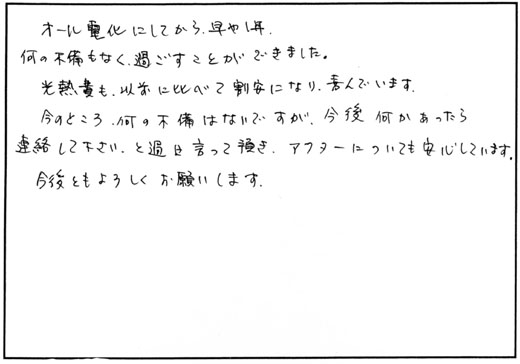 オール電化にしてから、早や1年、
何の不備もなく、過ごすことができました。
光熱費も、以前に比べて割安になり、喜んでいます。
今のところ、何の不備はないですが、今後何かあったら
連絡して下さい、と過日言って頂き、アフターについても安心しています。
今後ともよろしくお願いします。